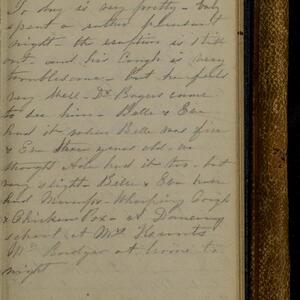 To day is very pretty - baby
spent a rather pleasant
night - the eruption is still
out - and his Cough is very
troublesome - but he feels
very Well - Dr Rogers came
to see him - Belle & Eva
had it when Belle was five
& Eva three years old - we
thought Ann had it too - but
very slight - Belle & Eva have
had Mumps - Whooping Cough
& Chicken Pox - at Dancing
school at Mrs
Mr at home to
night